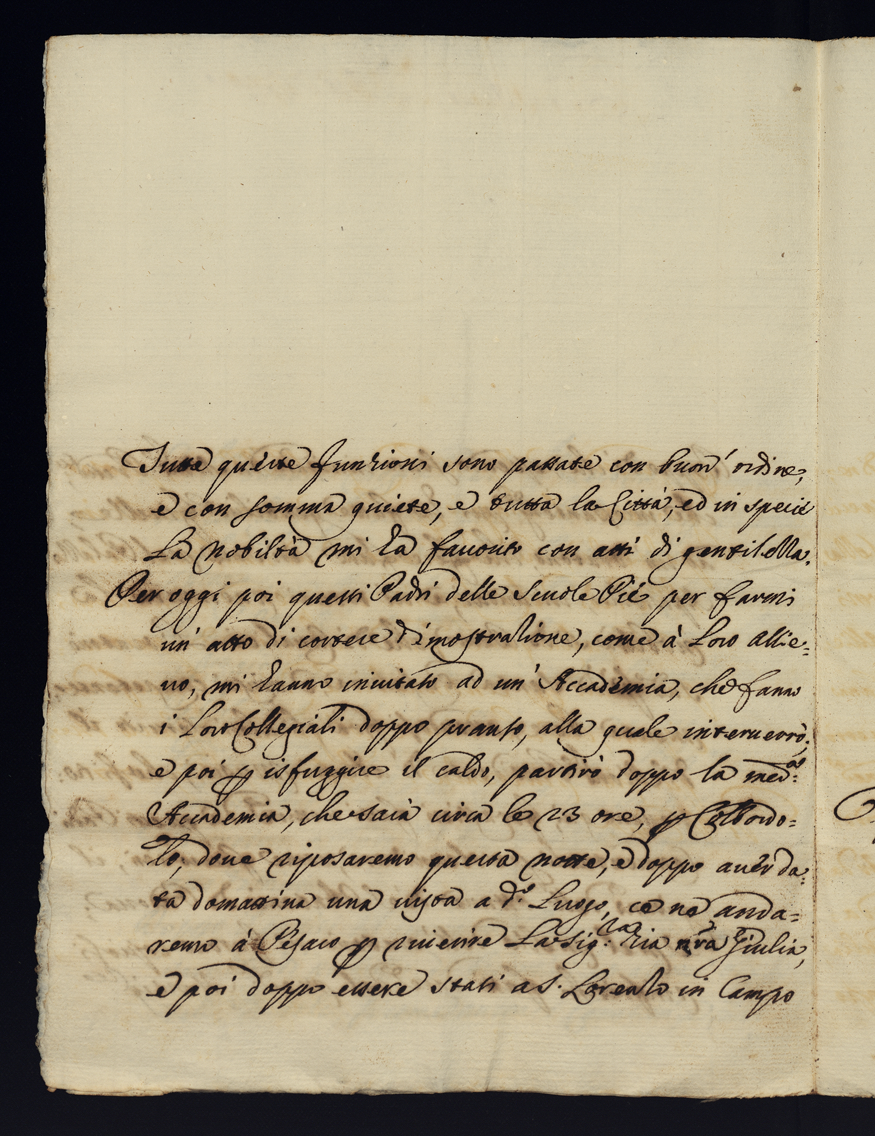 Tutte queste funzioni sono passate con buon' ordine,
e con somma quiete, e tutta la Città, ed in specie
La nobiltà mi ha favorito con atti di gentilezza.
Per oggi poi questi Padri delle Scuole Pie per farmi
un' atto di cortese dimostrazione, come à Loro Allie=
vo, mi hanno invitato ad un' Accademia, che fanno
i Loro Collegiali doppo pranso, alla quale interverrò;
e poi p isfuggire il caldo, partirò doppo la med:ª
Accademia, che sarà circa le 23 ore, p Colbordo=
lo, dove riposaremo questa notte, e doppo aver da=
ta domattina una vista a d:º Luogo, ce ne anda=
remo à Pesaro p riverire La Sig:ra Zia nra Giulia,
e poi doppo essere stati a S. Lorenzo in Campo